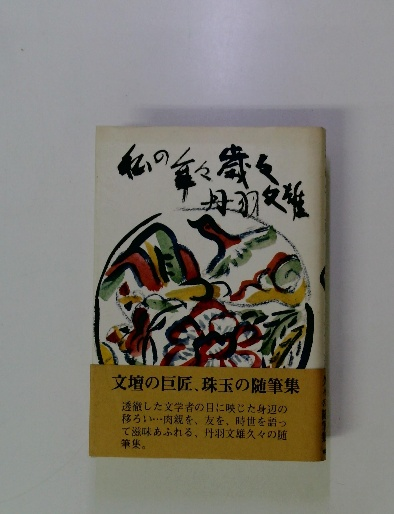 私の年々歳々
丹羽文雄
文壇の巨匠、珠玉の随筆集
透徹した文学者の目に映じた身辺の
移ろい…肉親を、友を、時世を語っ
て滋味あふれる、丹羽文雄久々の随
筆集。